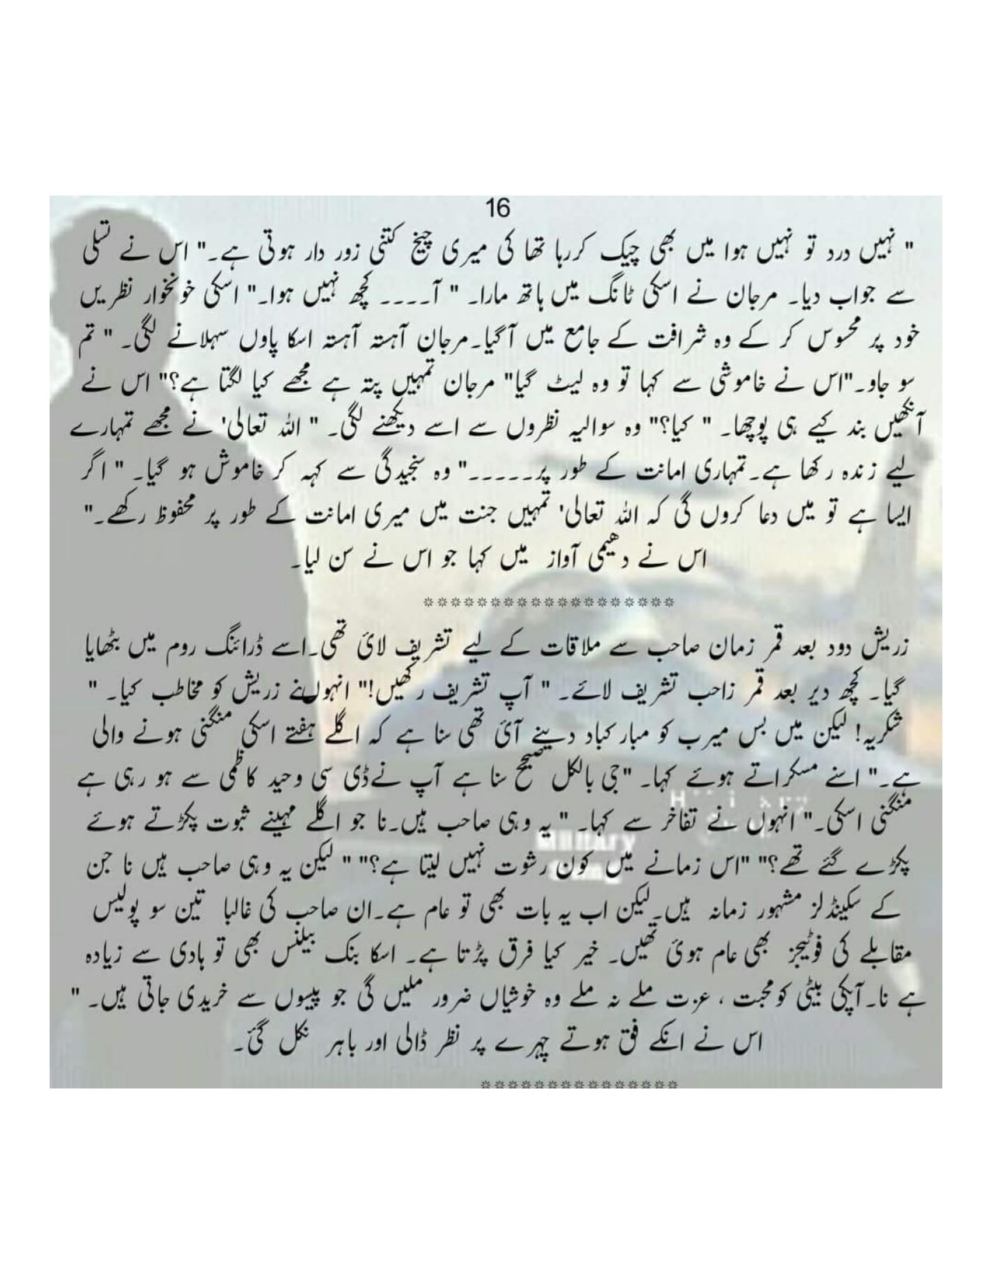 16
" نہیں درد تو نہیں ہوا میں بھی چیک کررہا تھا کی میری چیخ کتنی زور دار ہوتی ہے۔" اس نے تسلی
سے جواب دیا۔ مرجان نے اسکی ٹانگ میں ہاتھ مارا۔ " آ۔۔۔۔ کچھ نہیں ہوا۔" اسکی خونخوار نظریں
خود پر محسوس کر کے وہ شرافت کے جامع میں آگیا۔مرجان آہستہ آہستہ اسکا پاوں سہلانے لگی۔ " تم
سو جاو۔"اس نے خاموشی سے کہا تو وہ لیٹ گیا" مرجان تمہیں پتہ ہے مجھے کیا لگتا ہے؟" اس نے
آنکھیں بند کیے ہی پوچھا۔ " کیا؟" وہ سوالیہ نظروں سے اسے دیکھنے لگی۔ " اللہ تعالی' نے مجھے تمہارے
لیے زندہ رکھا ہے۔تمہاری امانت کے طور پر۔۔۔۔۔" وہ سنجیدگی سے کہہ کر خاموش ہو گیا۔ " اگر
ایسا ہے تو میں دعا کروں گی کہ اللہ تعالی' تمہیں جنت میں میری امانت کے طور پر محفوظ رکھے۔"
اس نے دھیمی آواز میں کہا جو اس نے سن لیا۔
*******************
زریش دود بعد قمر زمان صاحب سے ملاقات کے لیے تشریف لائ تھی۔اسے ڈرائنگ روم میں بٹھایا
گیا۔ کچھ دیر بعد قمر زاحب تشریف لائے۔ " آپ تشریف رکھیں!" انہوںنے زریش کو مخاطب کیا۔ "
شکریہ! لیکن میں بس میرب کو مبارکباد دینے آئ تھی سنا ہے کہ اگلے ہفتے اسکی منگنی ہونے والی
ہے۔" اسنے مسکراتے ہوئے کہا۔ "جی بالکل صحیح سنا ہے آپ نےڈی سی وحید کاظمی سے ہو رہی ہے
منگنی اسکی۔" انہوں نے تفاخر سے کہا۔ " یہ وہی صاحب ہیں۔نا جو اگلے مہینے ثبوت پکڑتے ہوئے
پکڑے گئے تھے؟" "اس زمانے میں کون رشوت نہیں لیتا ہے؟" " لیکن یہ وہی صاحب ہیں نا جن
کے سکینڈلز مشہور زمانہ ہیں۔لیکن اب یہ بات بھی تو عام ہے۔ان صاحب کی غالبا تین سو پولیس
مقابلے کی فوٹیجز بھی عام ہوئ تھیں۔ خیر کیا فرق پڑتا ہے۔ اسکا بنک بیلنس بھی تو ہادی سے زیادہ
ہے نا۔آپکی بیٹی کومحبت ، عزت ملے نہ ملے وہ خوشیاں ضرور ملیں گی جو پیسوں سے خریدی جاتی ہیں۔ "
اس نے انکے فق ہوتے چہرے پر نظر ڈالی اور باہر نکل گئ۔
***************
Military